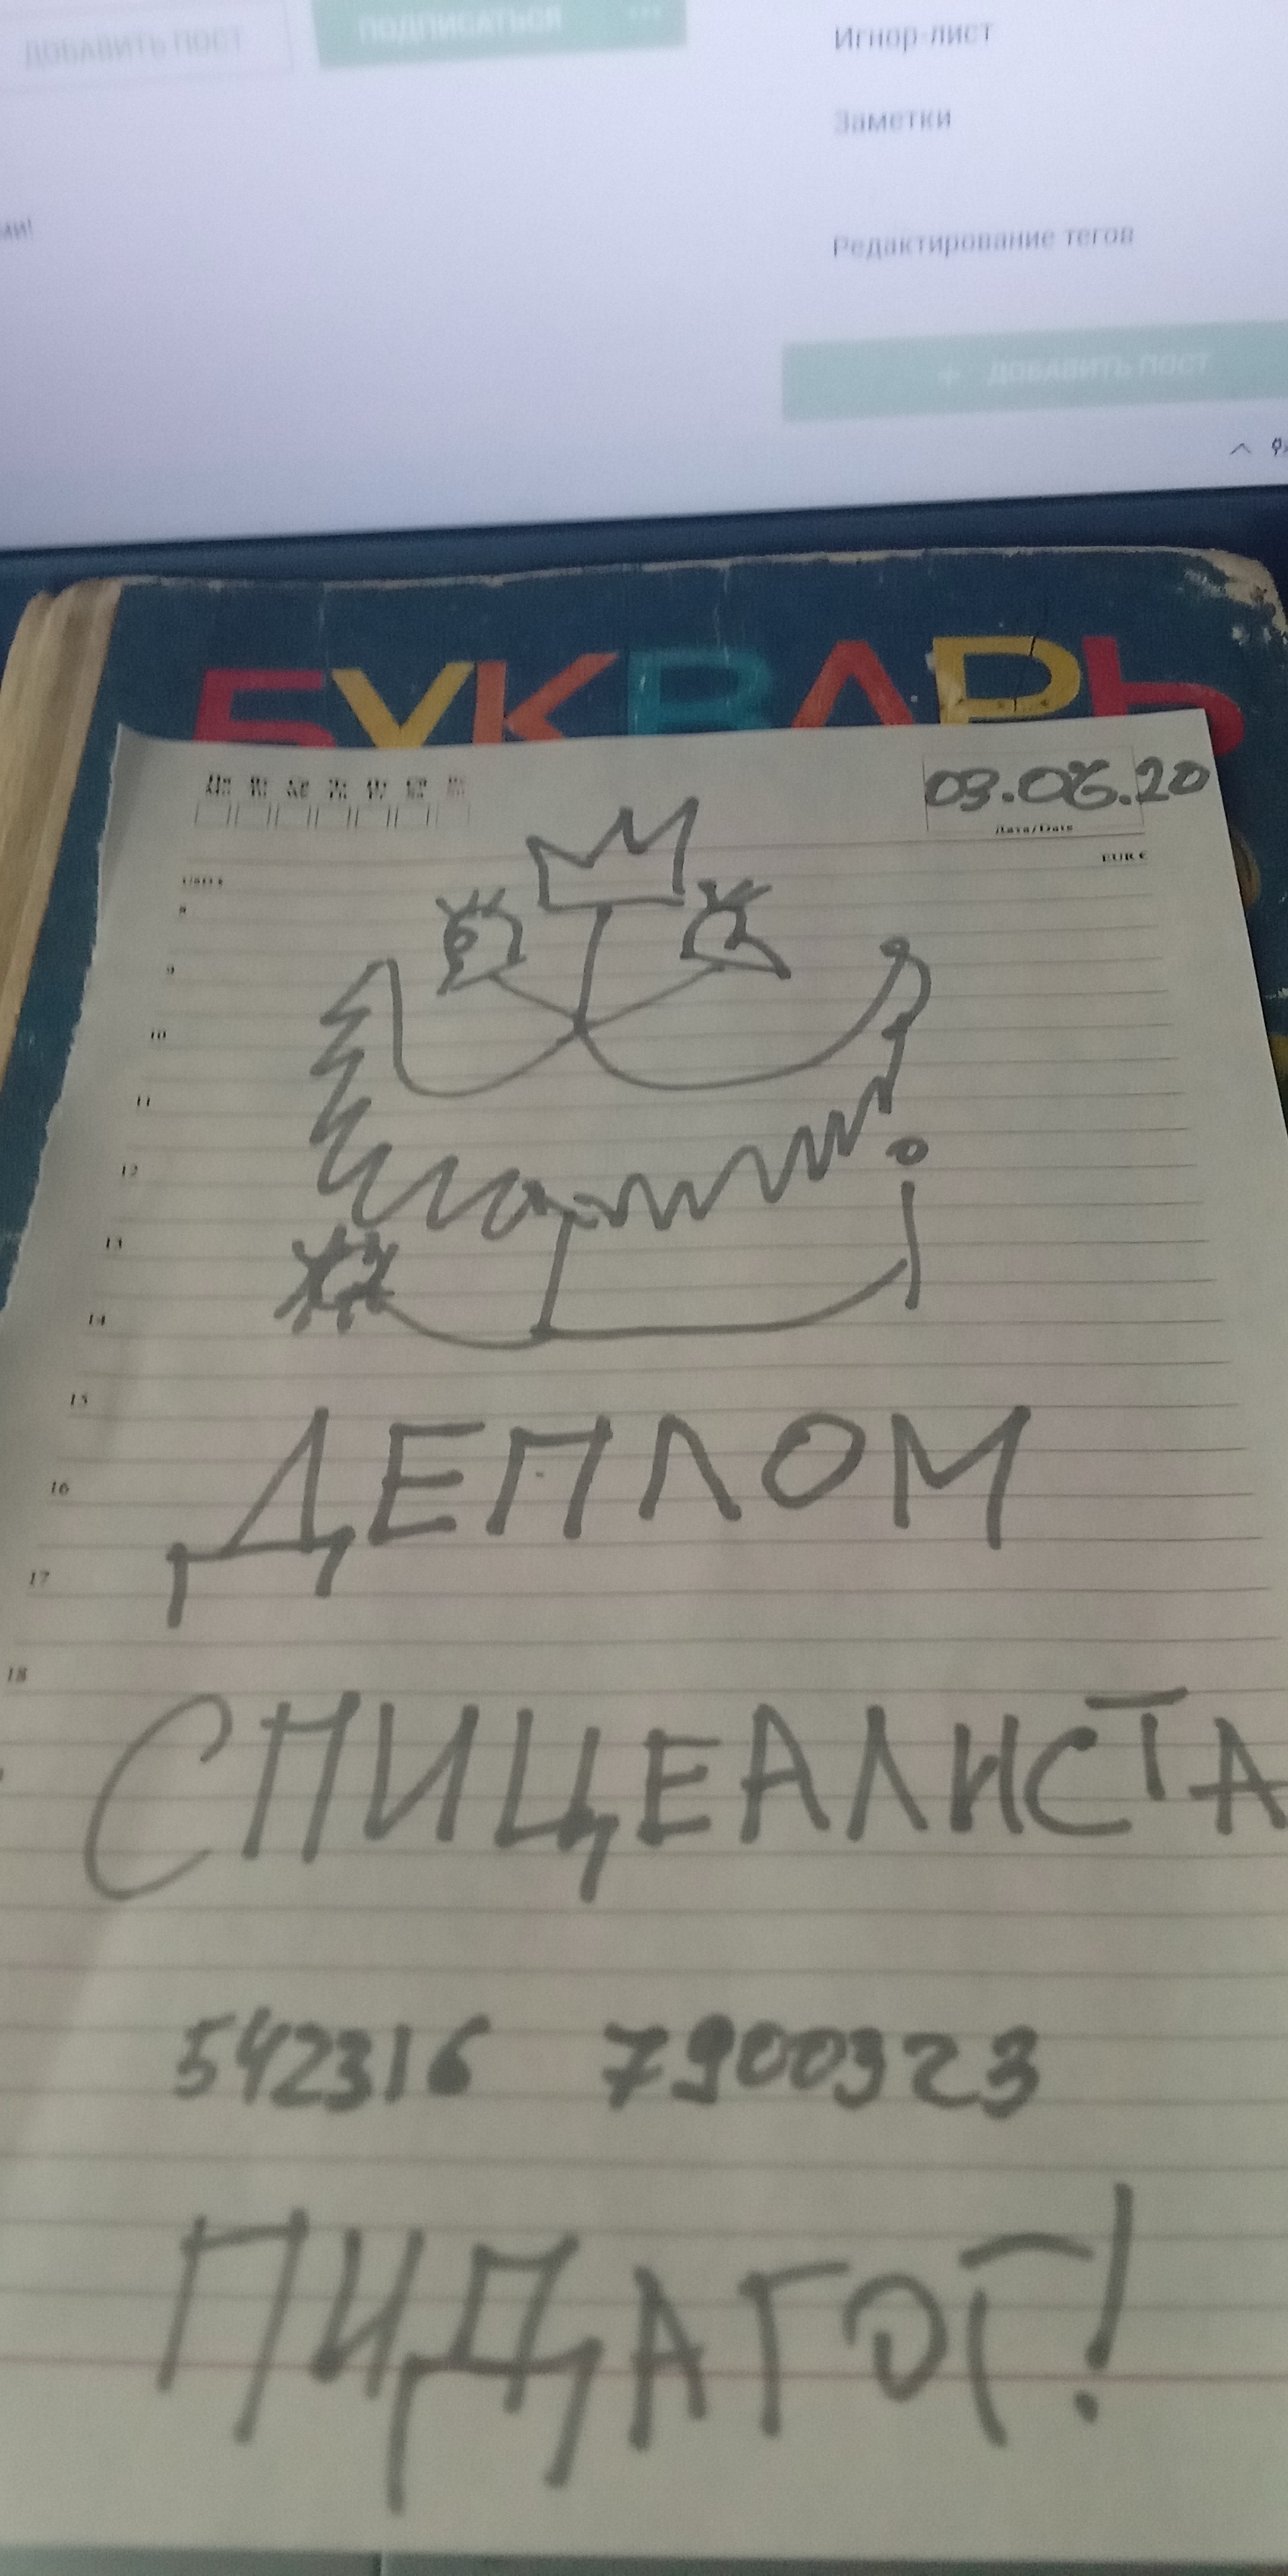 ДОБАВИТЬ ПОСТ
ПОДПИСАТЬСЯ
Игнор-лист
Заметки
ми!
Редактирование тегов
+ ДОБАВИТЬ ПОСТ
БУКВАРЬ
03.06.20
Дата/Date
EUR €
8
9
10
11
12
13
14
15
16
17
18
ДЕПЛОМ
СПИЦЕАЛИСТА
542316 7900323
ПИДАГОГ!